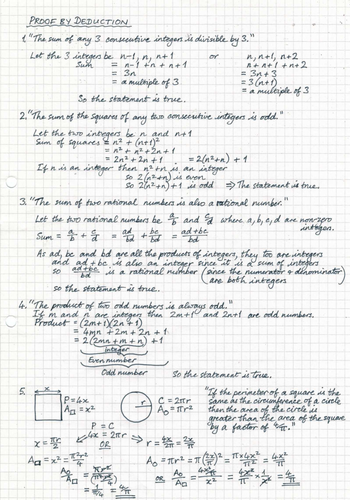 PROOF BY DEDUCTION
1. "The sum of any 3 consecutive integers is divisible by 3."
Let the 3 integers be n-1, n, n+1 or n, n+1, n+2
Sum = n-1 + n + n+1 n + n+1 + n+2
= 3n = 3n+3
= a multiple of 3 = 3(n+1)
= a multiple of 3
So the statement is true.
2. "The sum of the squares of any two consecutive integers is odd."
Let the two integers be n and n+1
Sum of squares = n² + (n+1)²
= n² + n² + 2n + 1
= 2n² + 2n + 1 = 2(n²+n) + 1
If n is an integer then n²+n is an integer
so 2(n²+n) is even
so 2(n²+n)+1 is odd ⇒ The statement is true.
3. "The sum of two rational numbers is also a rational number."
Let the two rational numbers be a/b and c/d where a, b, c, d are non-zero integers.
Sum = a/b + c/d = ad/bd + bc/bd = ad+bc/bd
As ad, bc and bd are all the products of integers, they too are integers
and ad+bc is also an integer since it is a sum of integers
so ad+bc/bd is a rational number (since the numerator & denominator are both integers)
so the statement is true.
4. "The product of two odd numbers is always odd."
If m and n are integers then 2m+1 and 2n+1 are odd numbers.
Product = (2m+1)(2n+1)
= 4mn + 2m + 2n + 1
= 2(2mn+m+n) + 1
Integer
Even number
Odd number So the statement is true.
5. x P = 4x A□ = x² r C = 2πr A○ = πr²
"If the perimeter of a square is the
same as the circumference of a circle
then the area of the circle is
greater than the area of the square
by a factor of 4/π."
P = C
4x = 2πr
x = πr/2 OR r = 4x/2π = 2x/π
A□ = x² = π²r²/4 A○ = πr² = π(2x/π)² = π×4x²/π² = 4x²/π
A○/A□ = πr²/(π²r²/4) OR A○/A□ = 4x²/π / x² = 4x²/π × 1/x² = 4/π
= 1/(π/4) = 4/π